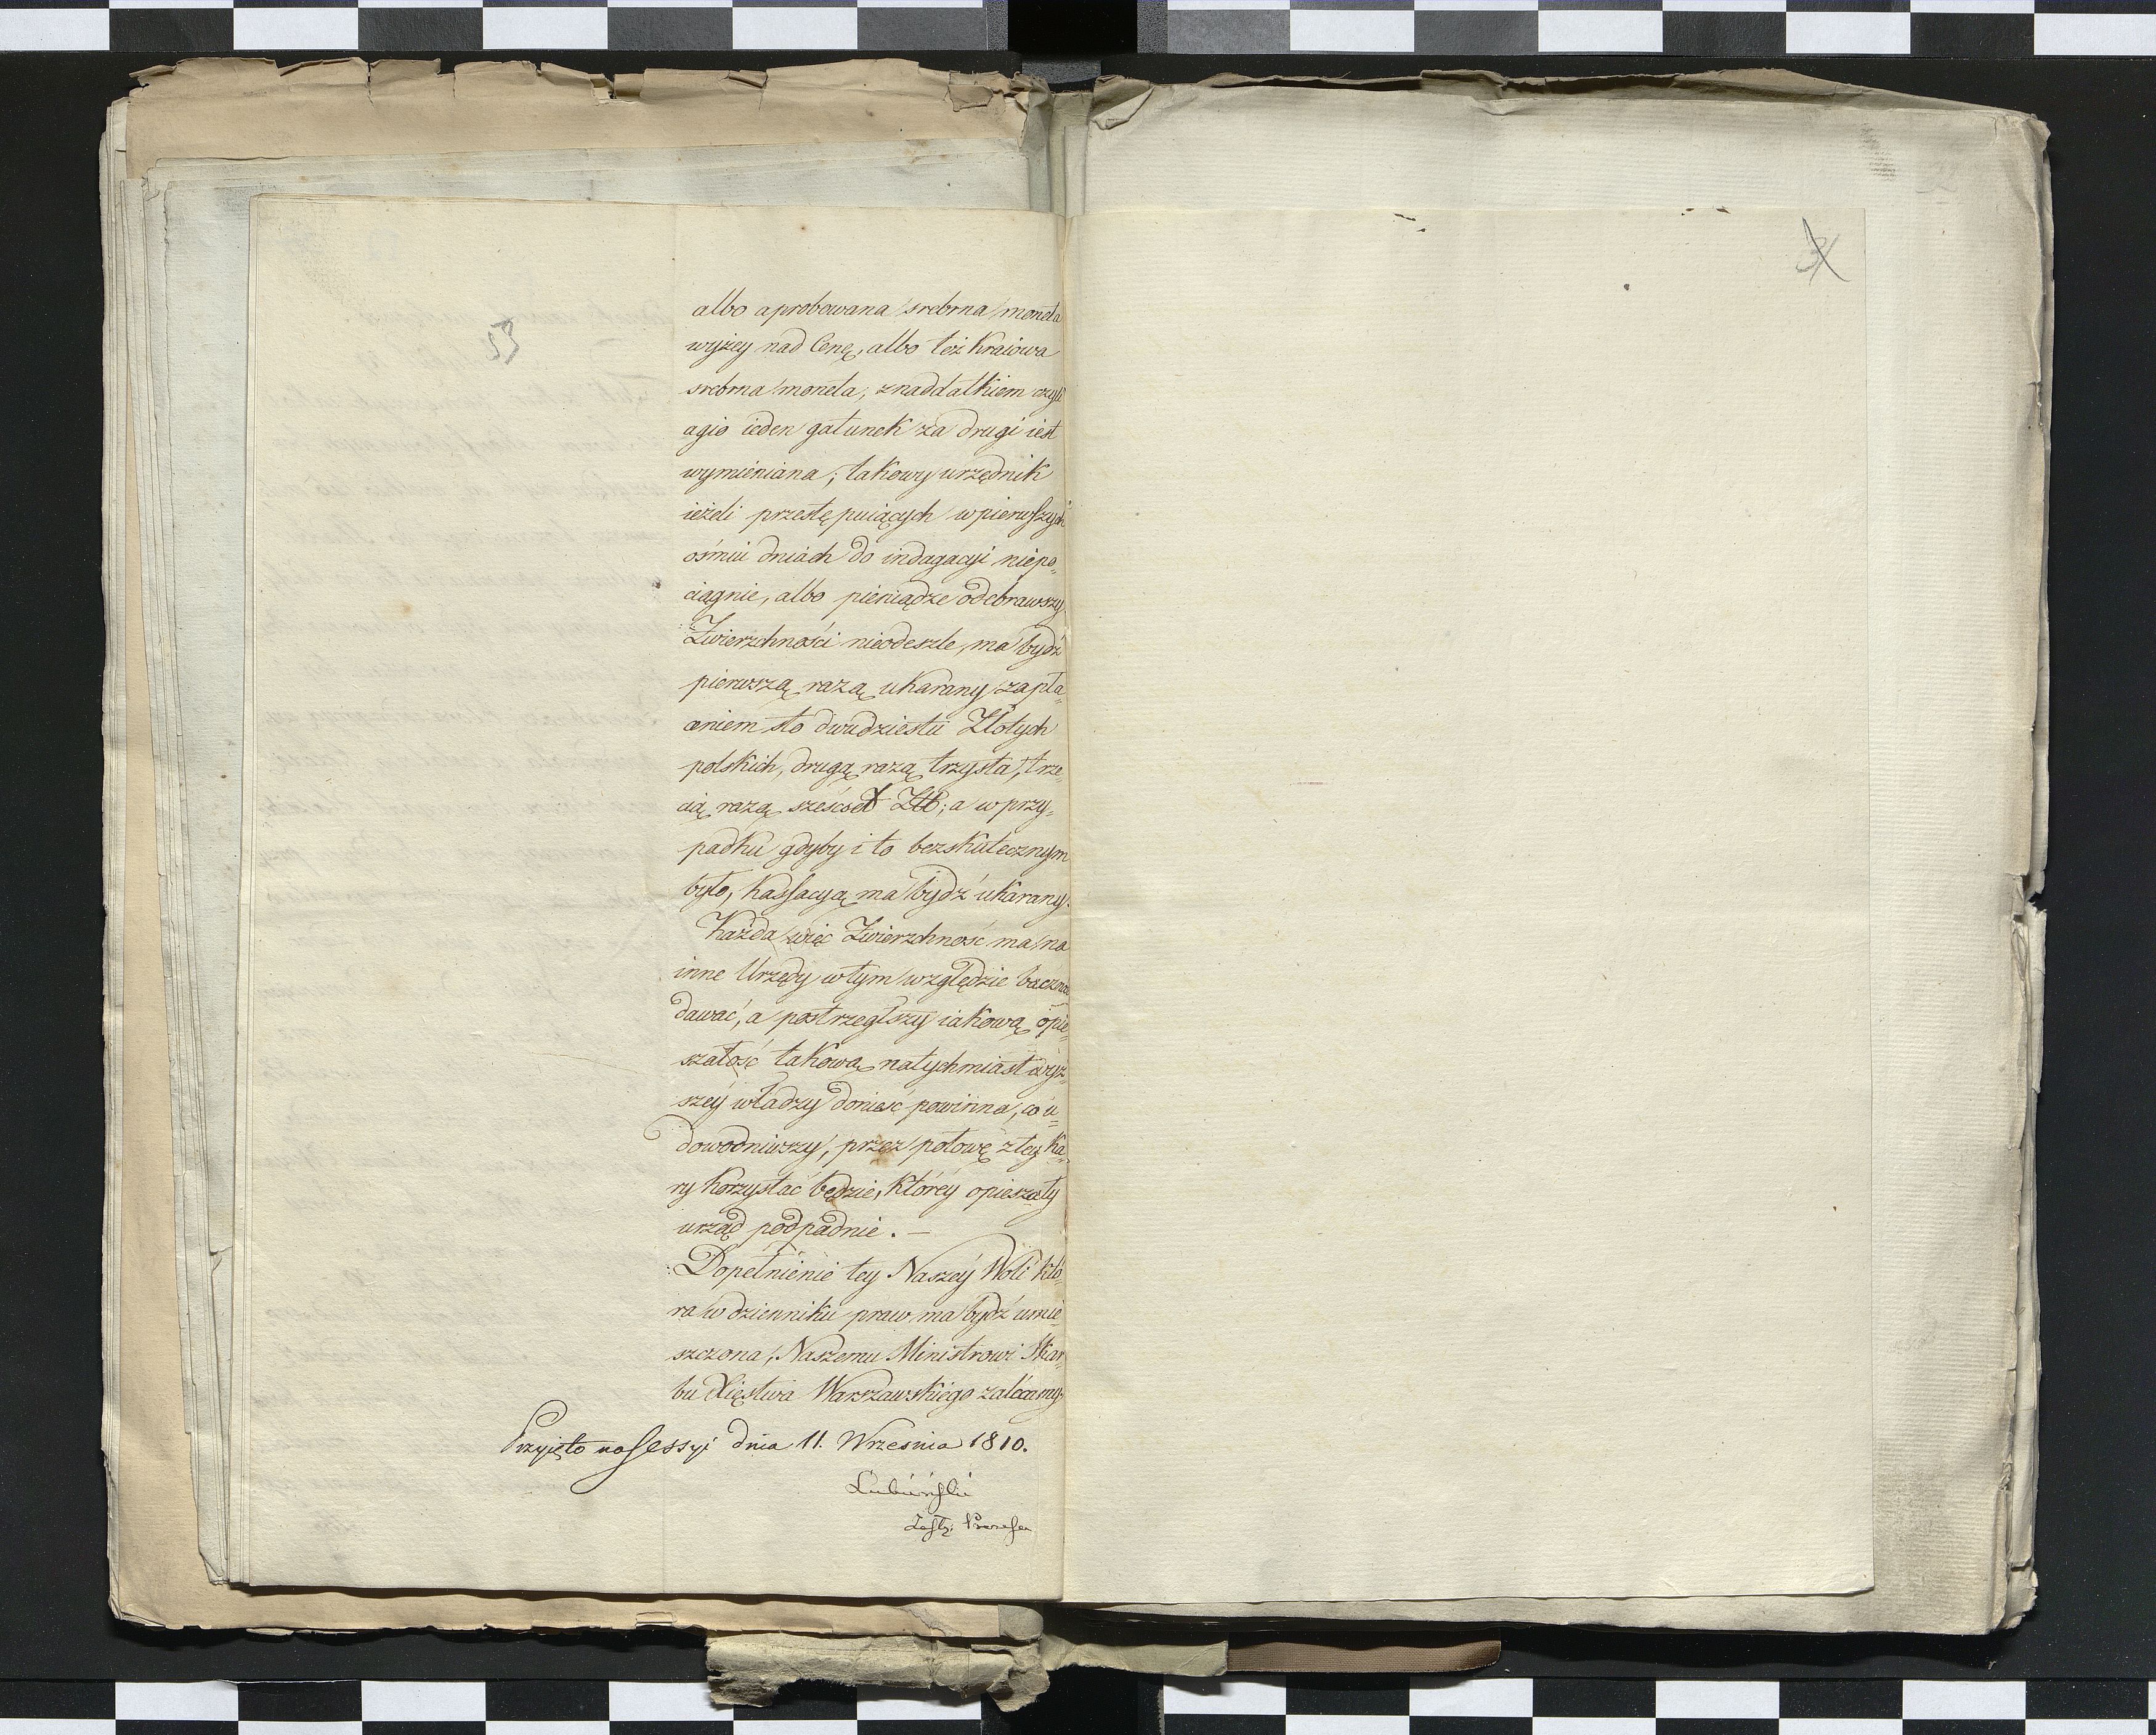 53
albo aprobowana srebrna moneta
wyżey nad Cenę, albo też Kraiowa
srebrna moneta, z naddatkiem czyli
agio ieden gatunek za drugi iest
wymieniana; takowy urzędnik
ieżeli przestępuiących w pierwszych
ośmiu dniach do indagacyi niepo„
ciągnie, albo pieniądze odebrawszy
Zwierzchności nieodeszle, ma bydź
pierwszą razą ukarany zapła„
ceniem sto dwudziestu Złotych
polskich, drugą razą trzysta, trze„
cią razą sześćset Złł; a w przy„
padku gdyby i to bezskutecznym
było, Kassacyą ma bydź ukarany.
Każda więc Zwierzchność ma na
inne Urzędy w tym względzie baczność
dawać, a postrzegłszy iakową opie„
szałość takową natychmiast wyż„
széy władzy donieść powinna, co u„
dowodniwszy, przez połowę z tey Ka„
ry korzystać będzie, któréy opieszały
urząd podpadnie. —
Dopełnienie tey Naszéy Woli któ„
ra w dzienniku praw ma bydź umie„
szczona, Naszemu Ministrowi Skar„
bu Xięstwa Warszawskiégo zalécamy
Przyięto na sessyi dnia 11. Września 1810.
Łubieński
Zastę. Prezesa